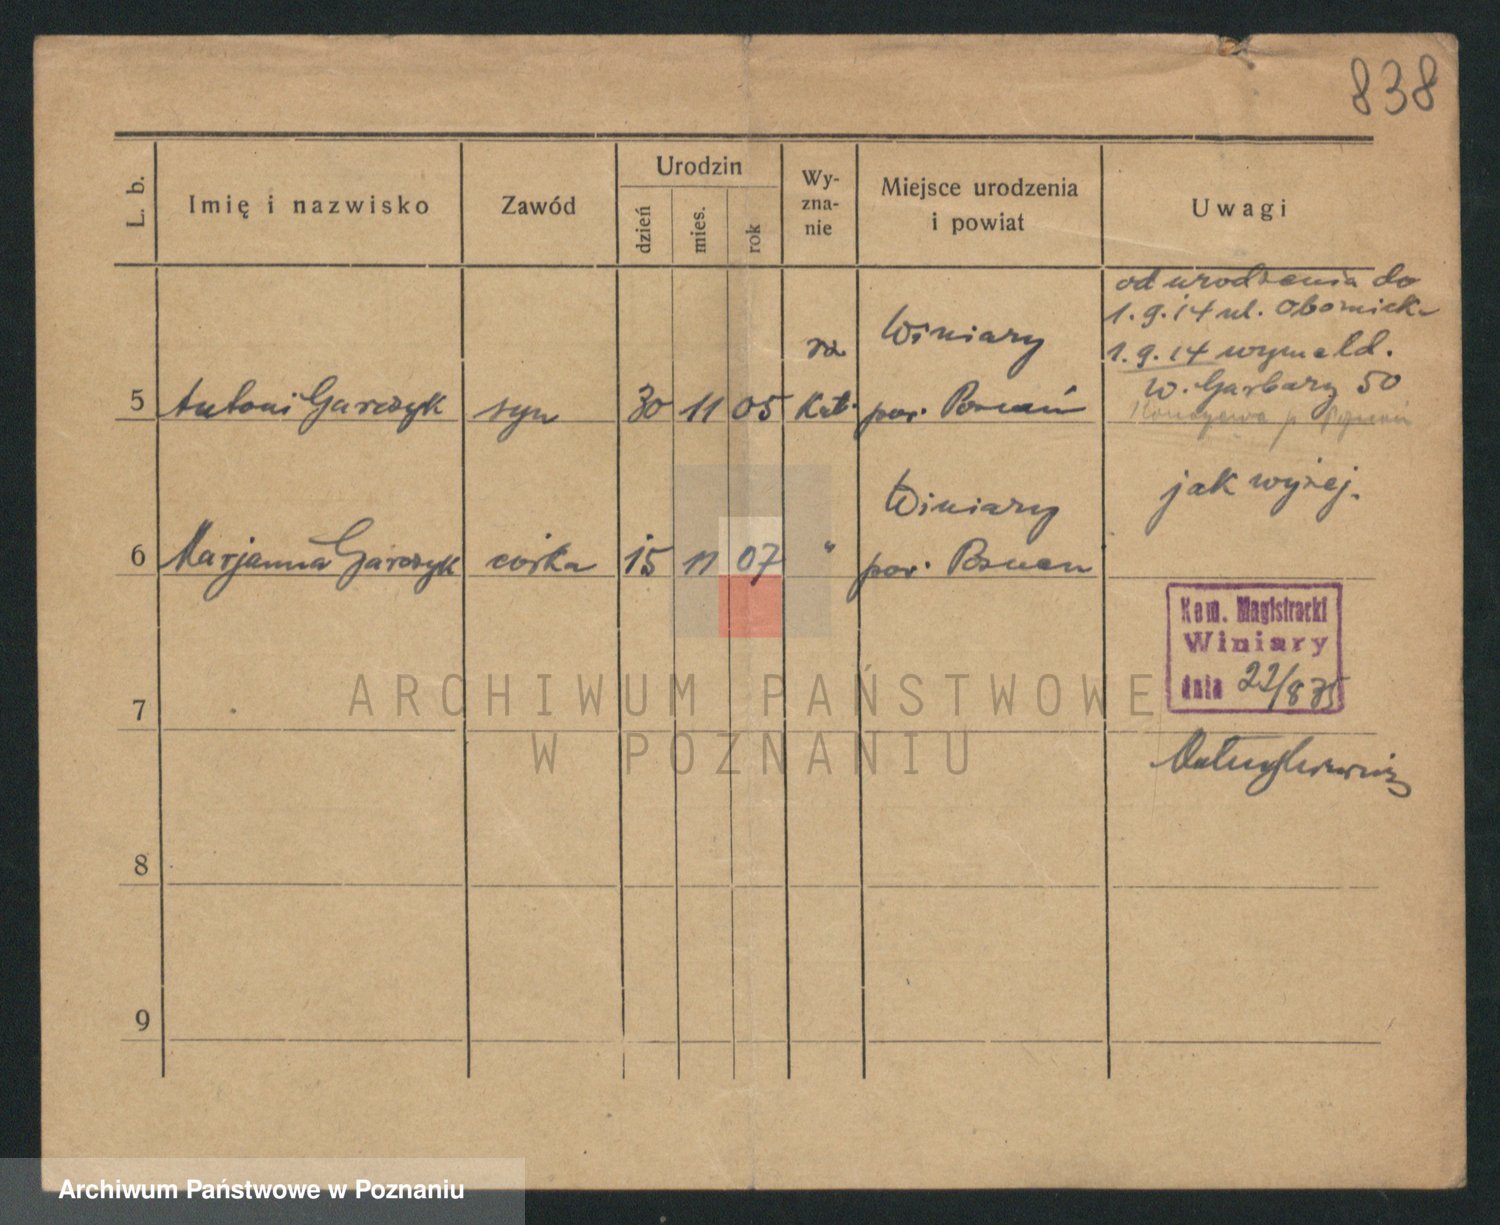 838
L. b.
Imię i nazwisko
Zawód
Urodzin
dzień
mies.
rok
Wy-
zna-
nie
Miejsce urodzenia
i powiat
Uwagi
5
Antoni Garczyk
syn
30
11
05
rz
Kat.
Winiary
pow. Poznań
od urodzenia do
1.9.14 ul. Obornick
1.9.14 wymeld.
W. Garbary 50
6
Marjanna Garczyk
córka
15
11
07
"
Winiary
pow. Poznań
jak wyżej.
Kom. Magistracki
Winiary
dnia 22/8 35
7
8
9
ARCHIWUM PAŃSTWOWE
W POZNANIU
Archiwum Państwowe w Poznaniu